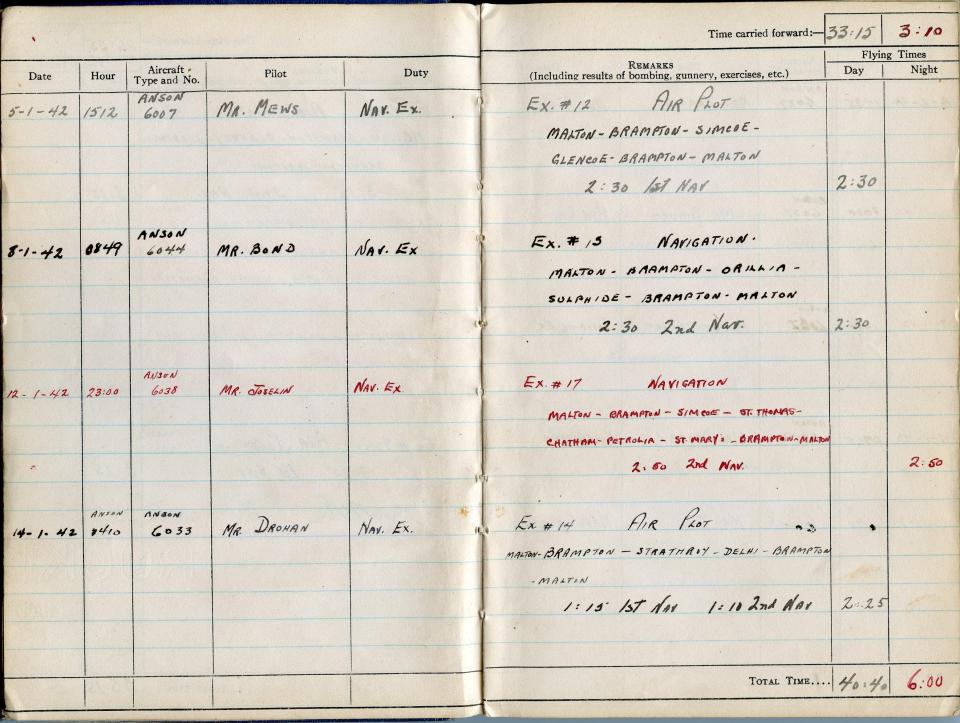 Time carried forward:— 33:15 3:10
Date Hour Aircraft Type and No. Pilot Duty
REMARKS
(Including results of bombing, gunnery, exercises, etc.)
Flying Times
Day Night
5-1-42 1512 ANSON 6007 MR. MEWS NAV. EX. EX. #12 AIR PLOT
MALTON-BRAMPTON-SIMCOE-
GLENCOE-BRAMPTON-MALTON
2:30 1st NAV 2:30
8-1-42 0849 ANSON 6044 MR. BOND NAV. EX EX. #13 NAVIGATION.
MALTON-BRAMPTON-ORILLIA-
SULPHIDE-BRAMPTON-MALTON
2:30 2nd Nav. 2:30
12-1-42 23:00 ANSON 6038 MR. JOSELIN NAV. EX. EX. #17 NAVIGATION
MALTON-BRAMPTON-SIMCOE-ST. THOMAS-
CHATHAM-PETROLIA-ST. MARY'S-BRAMPTON-MALTON
2:50 2nd NAV. 2:50
ANSON ANSON
14-1-42 6033 MR. DROHAN NAV. EX. EX #14 AIR PLOT
MALTON-BRAMPTON-STRATHROY-DELHI-BRAMPTON
-MALTON
1:15 1st NAV 1:10 2nd NAV 2:25
TOTAL TIME.... 40:40 6:00